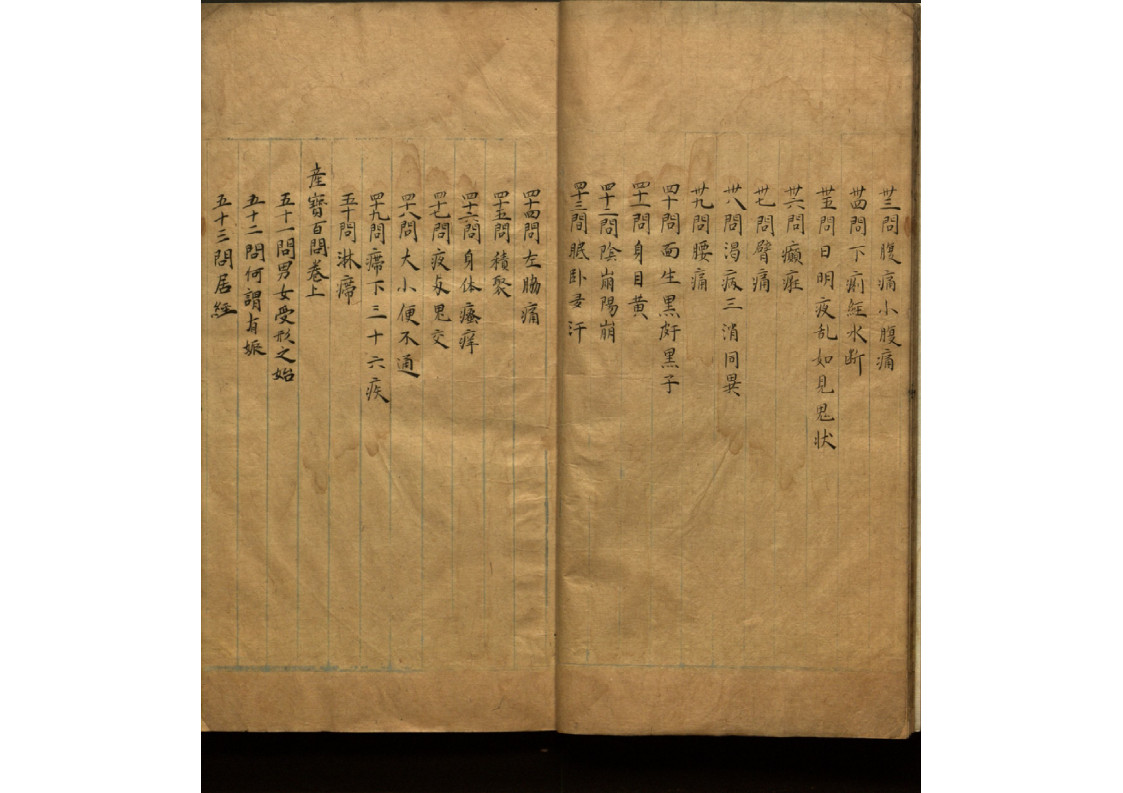 卅三問腹痛小腹痛
卅四問下痢經水断
卅五問日明夜乱如見鬼状
卅六問癲狂
卅七問臂痛
卅八問渴病三消同異
卅九問腰痛
四十問面生黒皯黒子
四十一問身目黄
四十二問陰崩陽崩
四十三問眠卧多汗
四十四問左脇痛
四十五問積聚
四十六問身体瘙痒
四十七問夜与鬼交
四十八問大小便不通
四十九問帶下三十六疾
五十問淋瀝
産寳百問卷上
五十一問男女受形之始
五十二問何謂有娠
五十三問居經